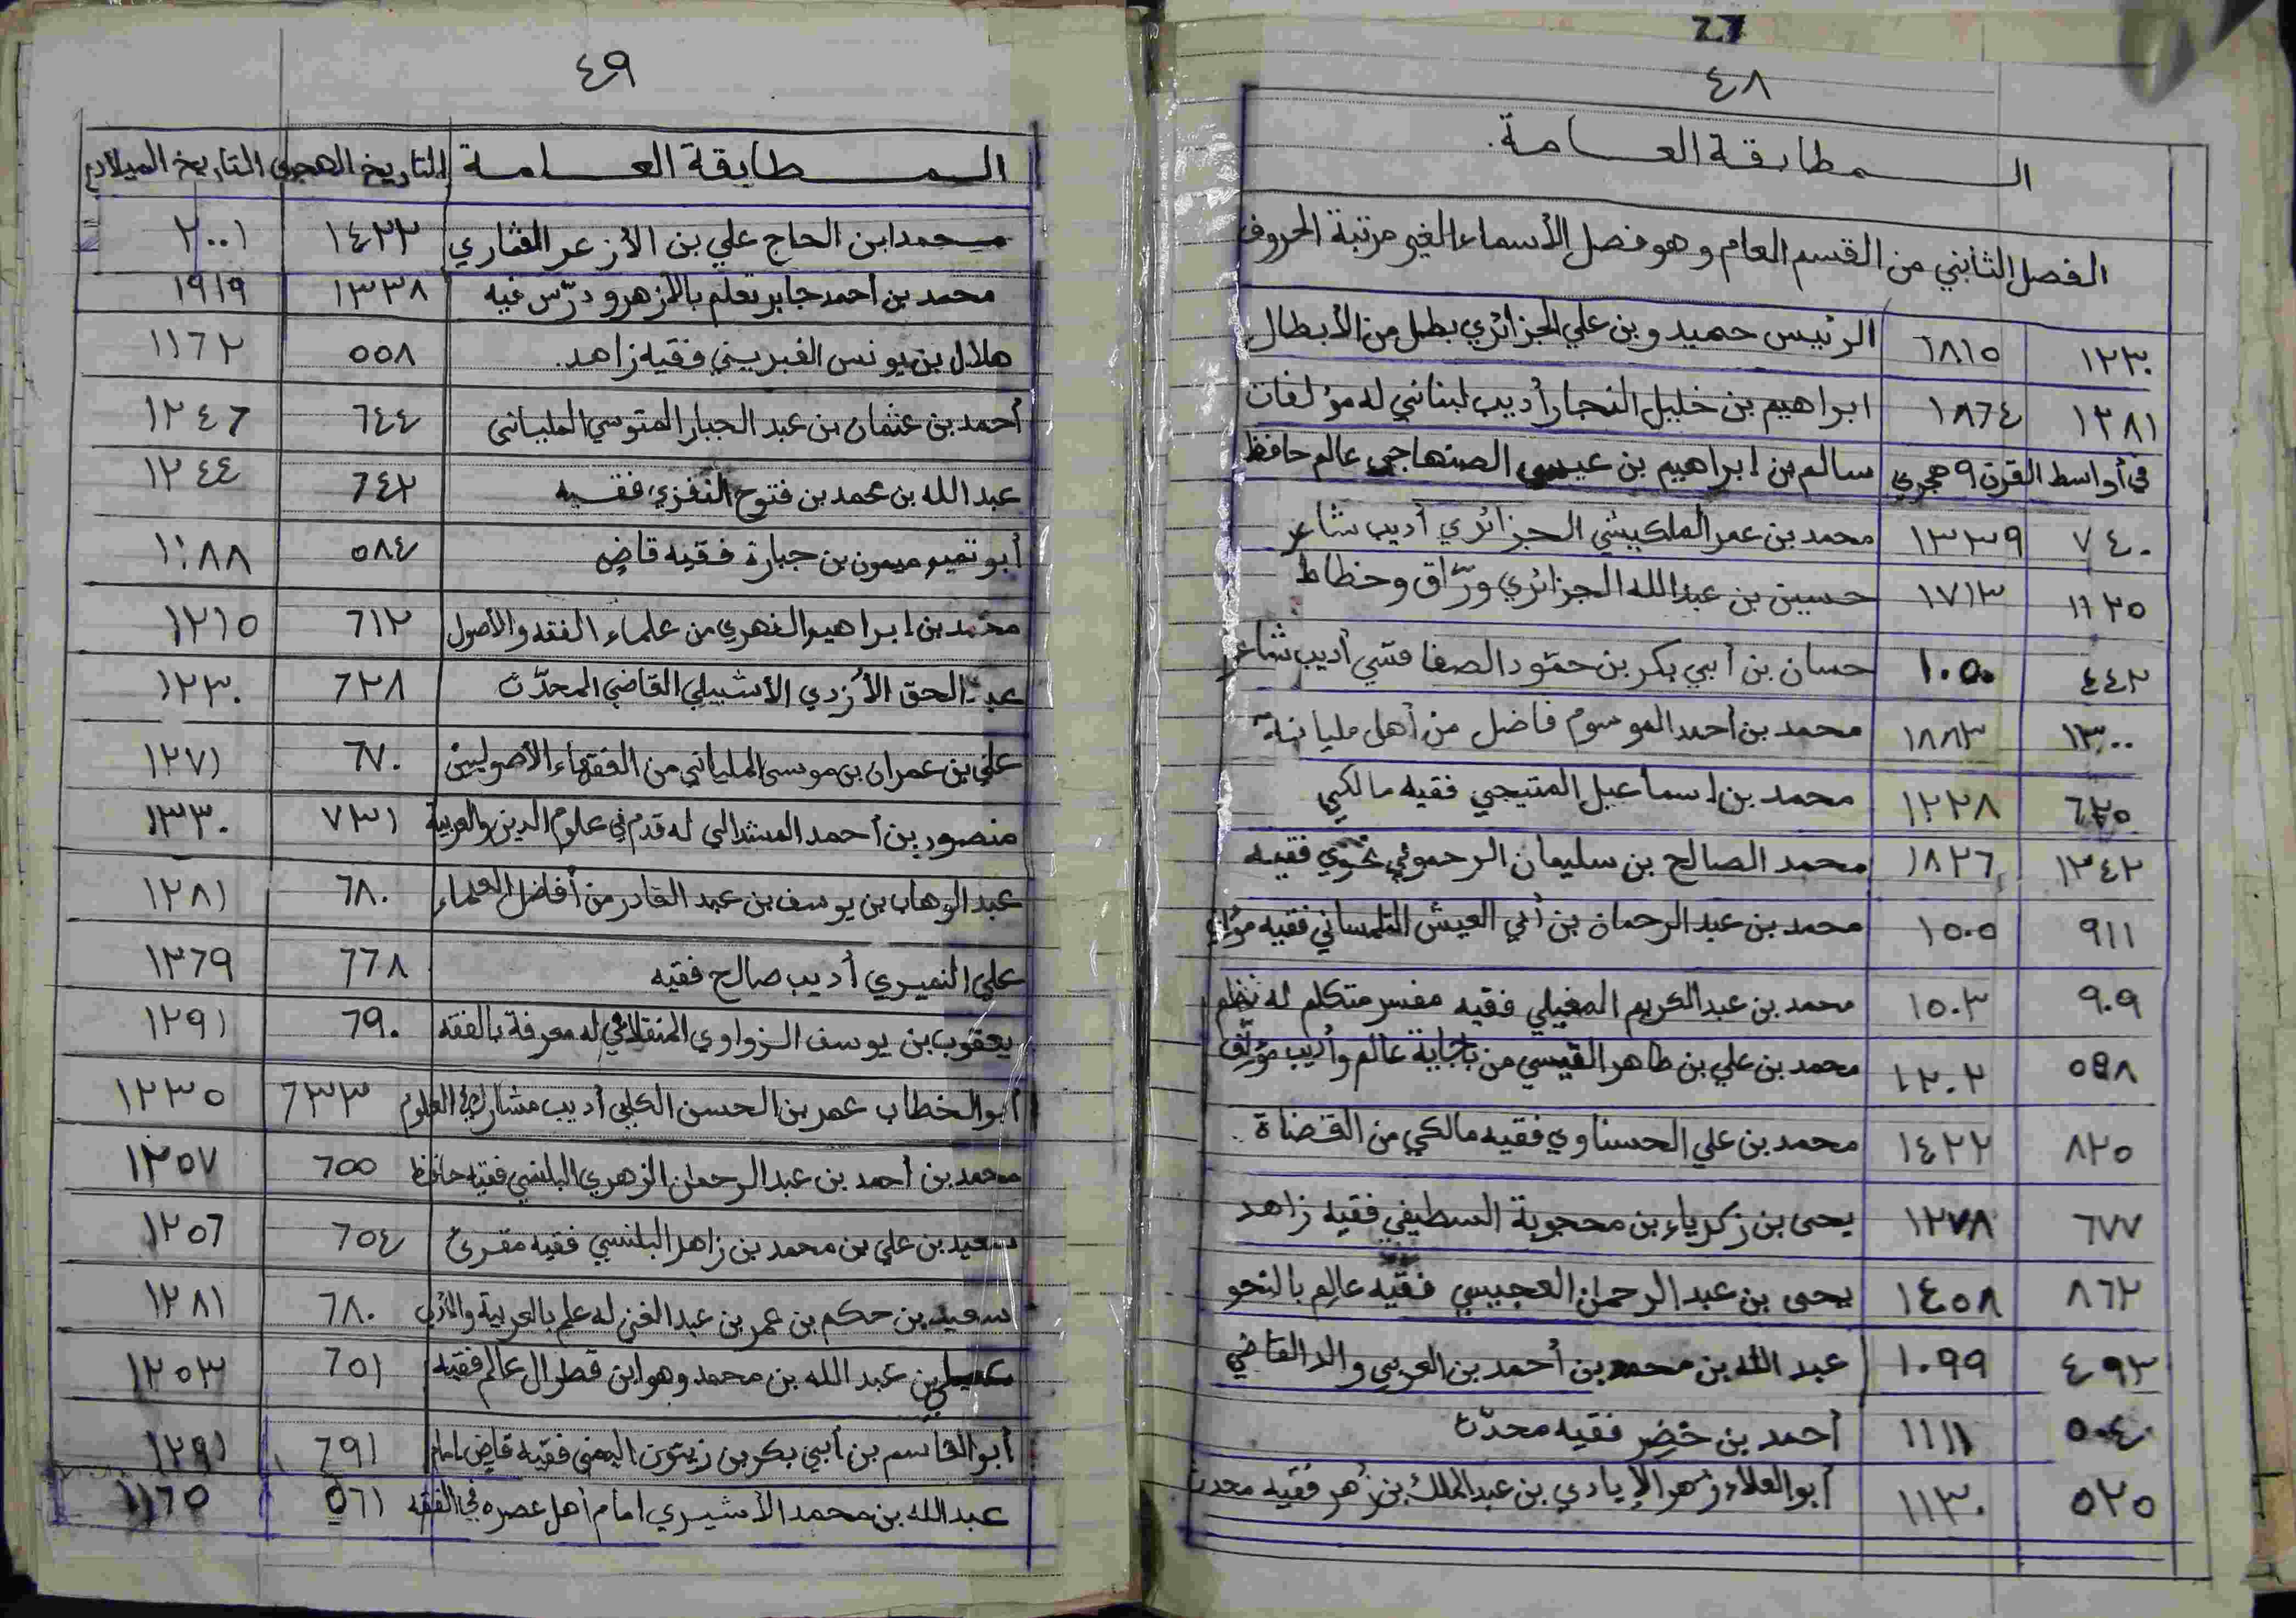 ٤٨
الـــمطابقة العـــامة.
الفصل الثاني من القسم العام وهو فصل الأسماء الغير مرتبة الحروف
١٢٣٠ ١٨١٥ الرئيس حميدو بن علي الجزائري بطل من الأبطال
١٢٨١ ١٨٦٤ ابراهيم بن خليل النجار أديب لبناني له مؤلفات
في أواسط القرن ٩ هجري سالم بن ابراهيم بن عيسى الصنهاجي عالم حافظ
٧٤٠ ١٣٣٩ محمد بن عمر الملكيشي الجزائري أديب شاعر
١١٢٥ ١٧١٣ حسين بن عبد الله الجزائري ورّاق وخطاط
٤٤٢ ١٠٥٠ حسان بن أبي بكر بن حمّود الصفاقسي أديب شاعر
١٣٠٠ ١٨٨٣ محمد بن أحمد الموسوم فاضل من أهل مليانة
٦٢٥ ١٢٢٨ محمد بن اسماعيل المتيجي فقيه مالكي
١٢٤٢ ١٨٢٦ محمد الصالح بن سليمان الرحموني نحوي فقيه
٩١١ ١٥٠٥ محمد بن عبد الرحمان بن أبي العيش التلمساني فقيه
٩٠٩ ١٥٠٣ محمد بن عبد الكريم المغيلي فقيه مفسر متكلم له نظم
٥٩٨ ١٢٠٢ محمد بن علي بن طاهر القيسي من بجاية عالم وأديب مؤلّف
٨٢٥ ١٤٢٢ محمد بن علي الحسناوي فقيه مالكي من القضاة.
٦٧٧ ١٢٧٨ يحى بن زكرياء بن محجوبة السطيفي فقيه زاهد
٨٦٢ ١٤٥٨ يحى بن عبد الرحمان العجيسي فقيه عالم بالنحو
٤٩٣ ١٠٩٩ عبد الله بن محمد بن أحمد بن العربي والد القاضي
٥٠٤ ١١١١ أحمد بن خضر فقيه محدّث
٥٢٥ ١١٣٠ أبو العلاء زهر الإيادي بن عبد الملك بن زهر فقيه محدث
٤٩
الـــمطابقة العـــامة التاريخ الهجري التاريخ الميلادي
محمد ابن الحاج علي بن الأزعر القماري ١٤٢٢ ٢٠٠١
محمد بن أحمد جابر تعلم بالأزهر ودرّس فيه ١٣٣٨ ١٩١٩
هلال بن يونس الغبريني فقيه زاهد. ٥٥٨ ١١٦٢
أحمد بن عثمان بن عبد الجبار المتوسي الملياني ٦٤٤ ١٢٤٦
عبد الله بن محمد بن فتوح النفزي فقيه ٦٤٢ ١٢٤٤
أبو تميم ميمون بن جبارة فقيه قاضي ٥٨٤ ١١٨٨
محمد بن ابراهيم الفهري من علماء الفقه والأصول ٦١٢ ١٢١٥
عبد الحق الأزدي الأشبيلي القاضي المحدّث ٦٢٨ ١٢٣٠
علي بن عمران بن موسى الملياني من الفقهاء الأصوليين ٦٧٠ ١٢٧١
منصور بن أحمد المشدالي له قدم في علوم الدين والعربية ٧٣١ ١٣٣٠
عبد الوهاب بن يوسف بن عبد القادر من أفاضل العلماء ٦٨٠ ١٢٨١
علي النميري أديب صالح فقيه ٦٦٨ ١٢٦٩
يعقوب بن يوسف الزواوي المنقلاتي له معرفة بالفقه ٦٩٠ ١٢٩١
أبو الخطاب عمر بن الحسن الكلبي أديب مشارك في العلوم ٦٣٣ ١٢٣٥
محمد بن أحمد بن عبد الرحمان الزهري البلنسي فقيه حافظ ٦٥٥ ١٢٥٧
سعيد بن علي بن محمد بن زاهر البلنسي فقيه مقرئ ٦٥٤ ١٢٥٦
سعيد بن حكم بن عمر بن عبد الغني له علم بالعربية والأدب ٦٨٠ ١٢٨١
علي بن عبد الله بن محمد وهو ابن قطرال عالم فقيه ٦٥١ ١٢٥٣
أبو القاسم بن أبي بكر بن زيتون اليمني فقيه قاضي امام ٦٩١ ١٢٩١
عبد الله بن محمد الأشيري امام أهل عصره في الفقه ٥٦١ ١١٦٥